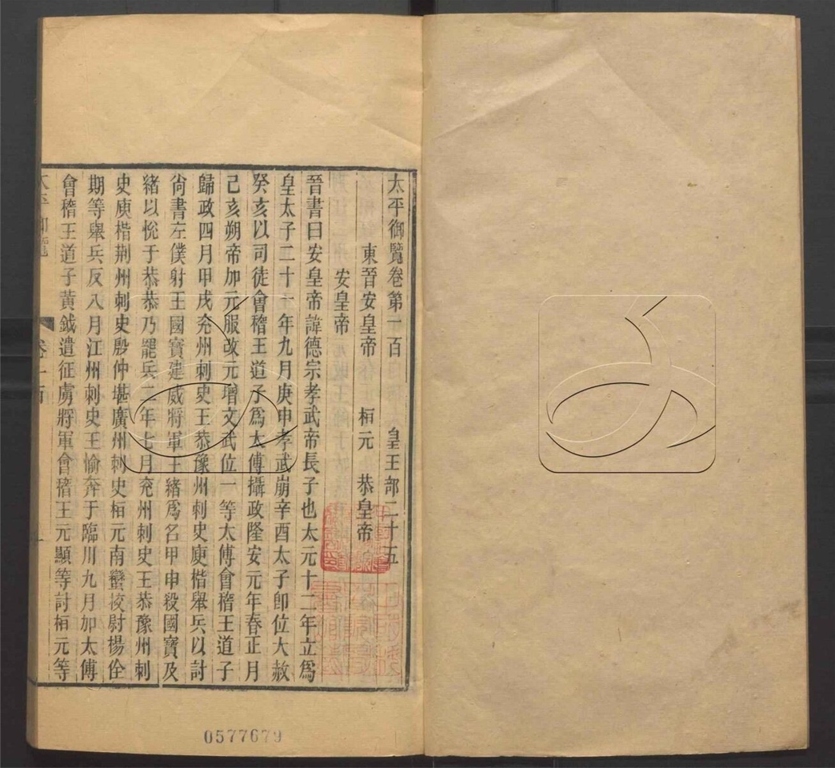 太平御覽卷第一百　皇王部二十五
東晉安皇帝　桓元　恭皇帝
安皇帝
晉書曰安皇帝諱德宗孝武帝長子也太元十二年立爲
皇太子二十一年九月庚申孝武崩辛酉太子卽位大赦
癸亥以司徒會稽王道子爲太傅攝政隆安元年春正月
己亥朔帝加元服改元增文武位一等太傅會稽王道子
歸政四月甲戌兗州刺史王恭豫州刺史庾楷舉兵以討
尙書左僕射王國寶建威將軍王緒爲名甲申殺國寶及
緒以悅于恭恭乃罷兵二年七月兗州刺史王恭豫州刺
史庾楷荆州刺史殷仲堪廣州刺史桓元南蠻校尉揚佺
期等舉兵反八月江州刺史王愉奔于臨川九月加太傅
會稽王道子黃鉞遣征虜將軍會稽王元顯等討桓元等
太平御覽　卷一百　一
0577679